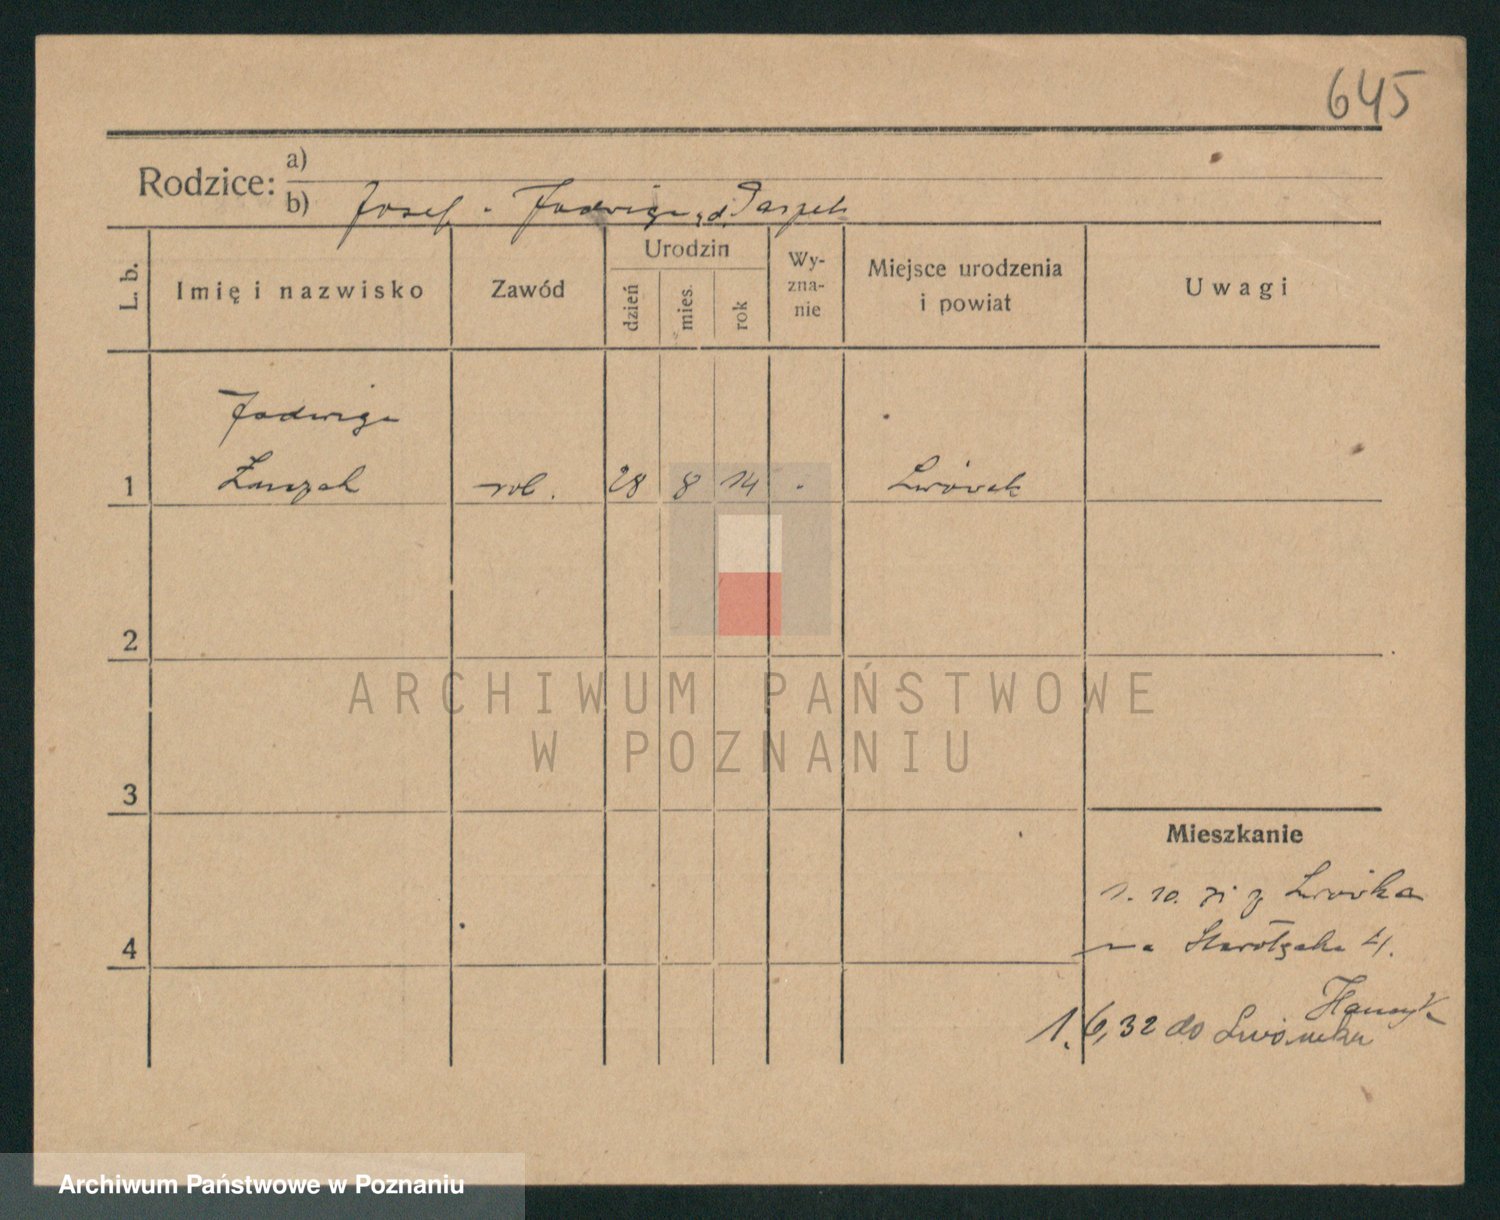 645
Rodzice: a)
b) Josef - Jadwiga
L. b. Imię i nazwisko Zawód Urodzin dzień mies. rok Wy-zna-nie Miejsce urodzenia i powiat Uwagi
Jadwiga
1 rob. 28 8 14 - Lwówek
2
ARCHIWUM PAŃSTWOWE
W POZNANIU
3
Mieszkanie
1. 10. 31 z Lwówka
4 na Starołęka 41.
1. 6, 32 do Lwówka
Archiwum Państwowe w Poznaniu